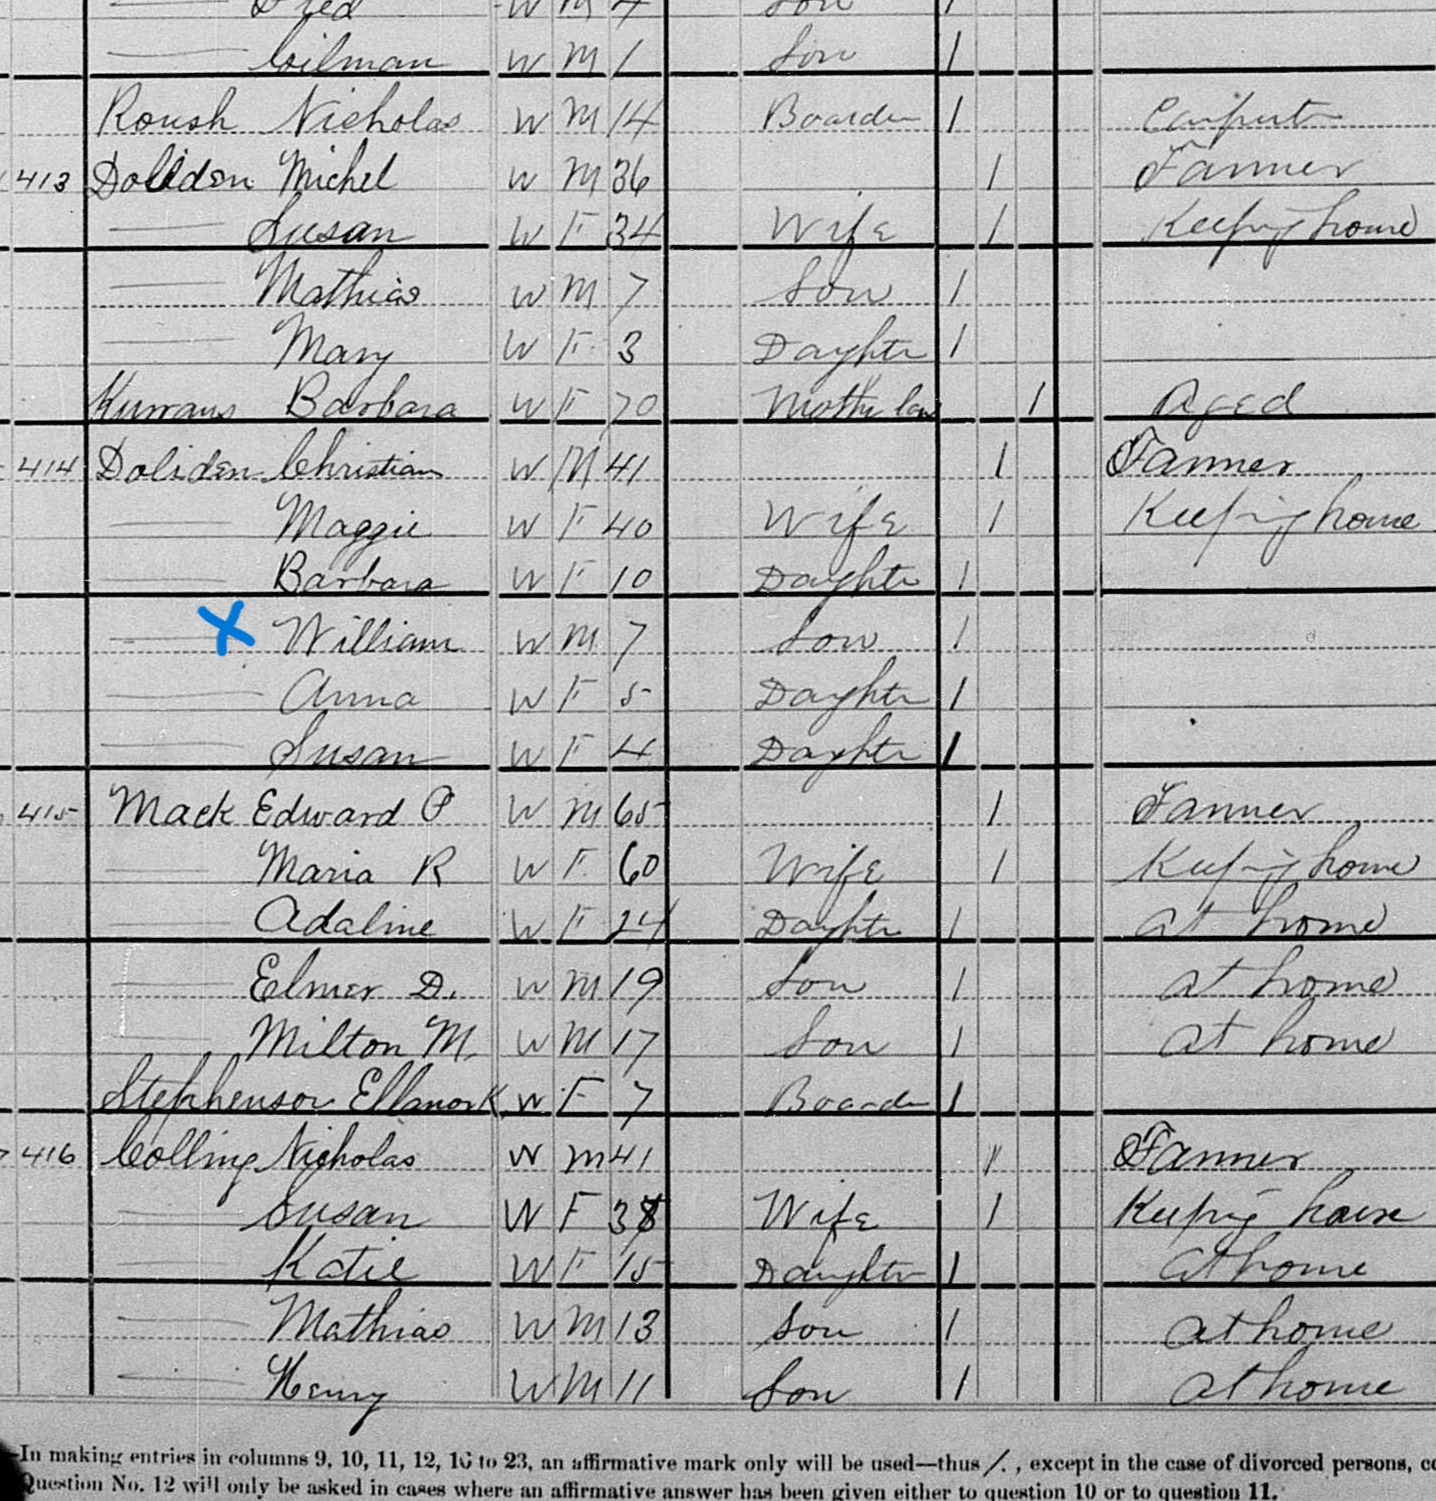 W M 4 Son 1
—— Gilman W M 1 Son 1
Roush Nicholas W M 14 Boarder 1
413 Doliden Michel W M 36 1 Farmer
—— Susan W F 34 Wife 1 Keeping home
—— Mathias W M 7 Son 1
—— Mary W F 3 Daughtr 1
Barbara W F 70 1 Aged
414 Doliden Christian W M 41 1 Farmer
—— Maggie W F 40 Wife 1 Keeping home
—— Barbara W F 10 Daughtr 1
—— William W M 7 Son 1
—— Anna W F 5 Daughtr 1
—— Susan W F 4 Daughtr 1
415 Mack Edward P W M 65 1 Farmer
—— Maria R W F 60 Wife 1 Keeping home
—— Adaline W F 24 Daughtr 1 at home
—— Elmer D. W M 19 Son 1 at home
—— Milton M. W M 17 Son 1 at home
Stephenson Ellanor K W F 7 Boarder 1
416 Colling Nicholas W M 41 1 Farmer
—— Susan W F Wife 1 Keeping house
—— Katie W F 15 Daughter 1 at home
—— Mathias W M 13 Son 1 at home
—— Henry W M 11 Son 1 at home
In making entries in columns 9, 10, 11, 12, 16 to 23, an affirmative mark only will be used—thus /. , except in the case of divorced persons,
Question No. 12 will only be asked in cases where an affirmative answer has been given either to question 10 or to question 11.